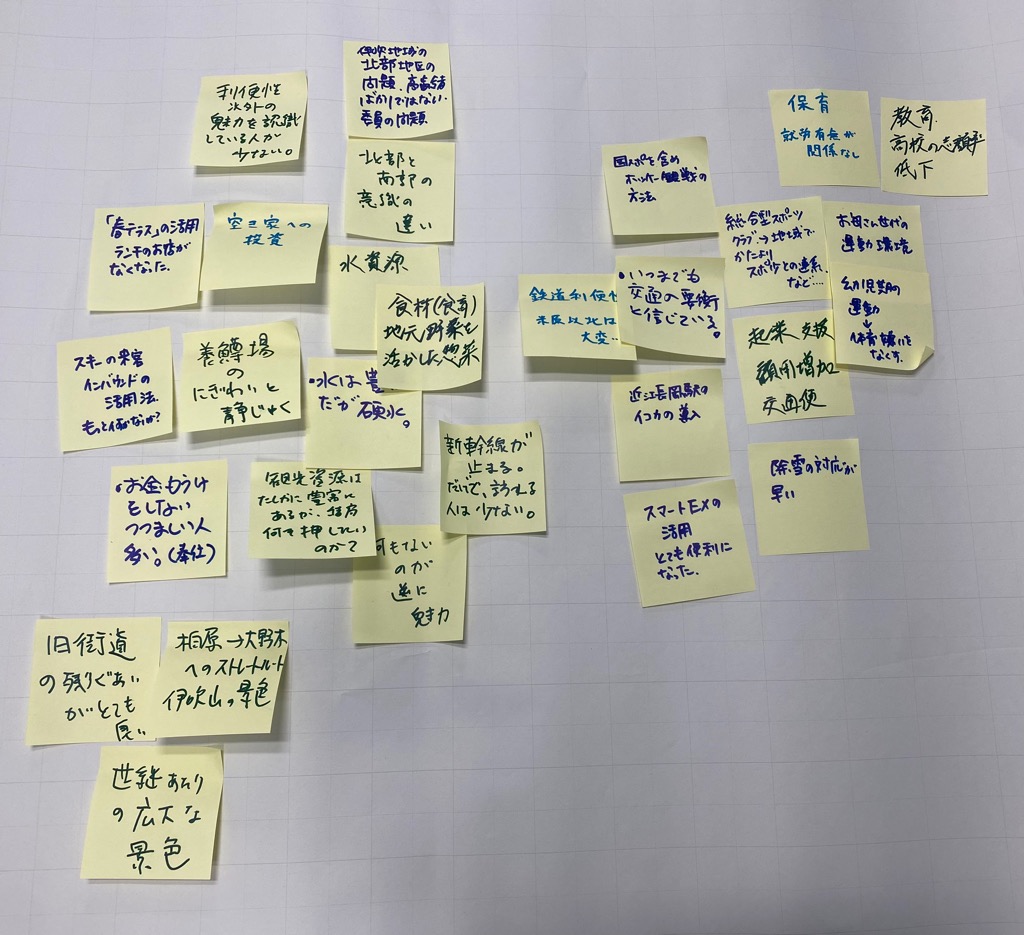 利便性
以外の
魅力を認識
している人が
少ない。
伊吹地域の
北部地区の
問題、高齢者
ばかりではない
委員の問題
北部と
南部の
意識の
違い
「春テラス」の活用
ランチのお店が
なくなった。
空き家への
投資
水資源
食材(食育)
地元野菜を
活かした惣菜
スキーの来客
インバウンドの
活用法
もっと何かないか?
養鱒場
の
にぎわいと
静じゃく
・水は豊
だが硬水。
新幹線が
止まる。
だけで、訪れる
人は少ない。
・お金もうけ
をしない
つつましい人
多い。(奉仕)
観光資源は
たしかに豊富に
あるが、結局
何を押したい
のか?
何もない
のが
逆に
魅力
旧街道
の残りぐあい
がとても
良い
柏原→大野木
へのストレートルート
伊吹山の景色
世継あたり
の広大な
景色
国スポを含め
ホッケー観戦の
方法
保育
就労有無が
関係なし
教育
高校の志願率
低下
総合型スポーツ
クラブ→地域で
かたより
スポ少との連系
など…
お母さん世代の
運動環境
幼児期の
運動
↓
体育嫌いを
なくす.
鉄道利便性
米原以北は
大変…
・いつまでも
交通の要衝
と信じている。
起業支援
雇用増加
交通便
近江長岡駅の
イコカの導入
除雪の対応が
早い
スマートEXの
活用
とても便利に
なった.